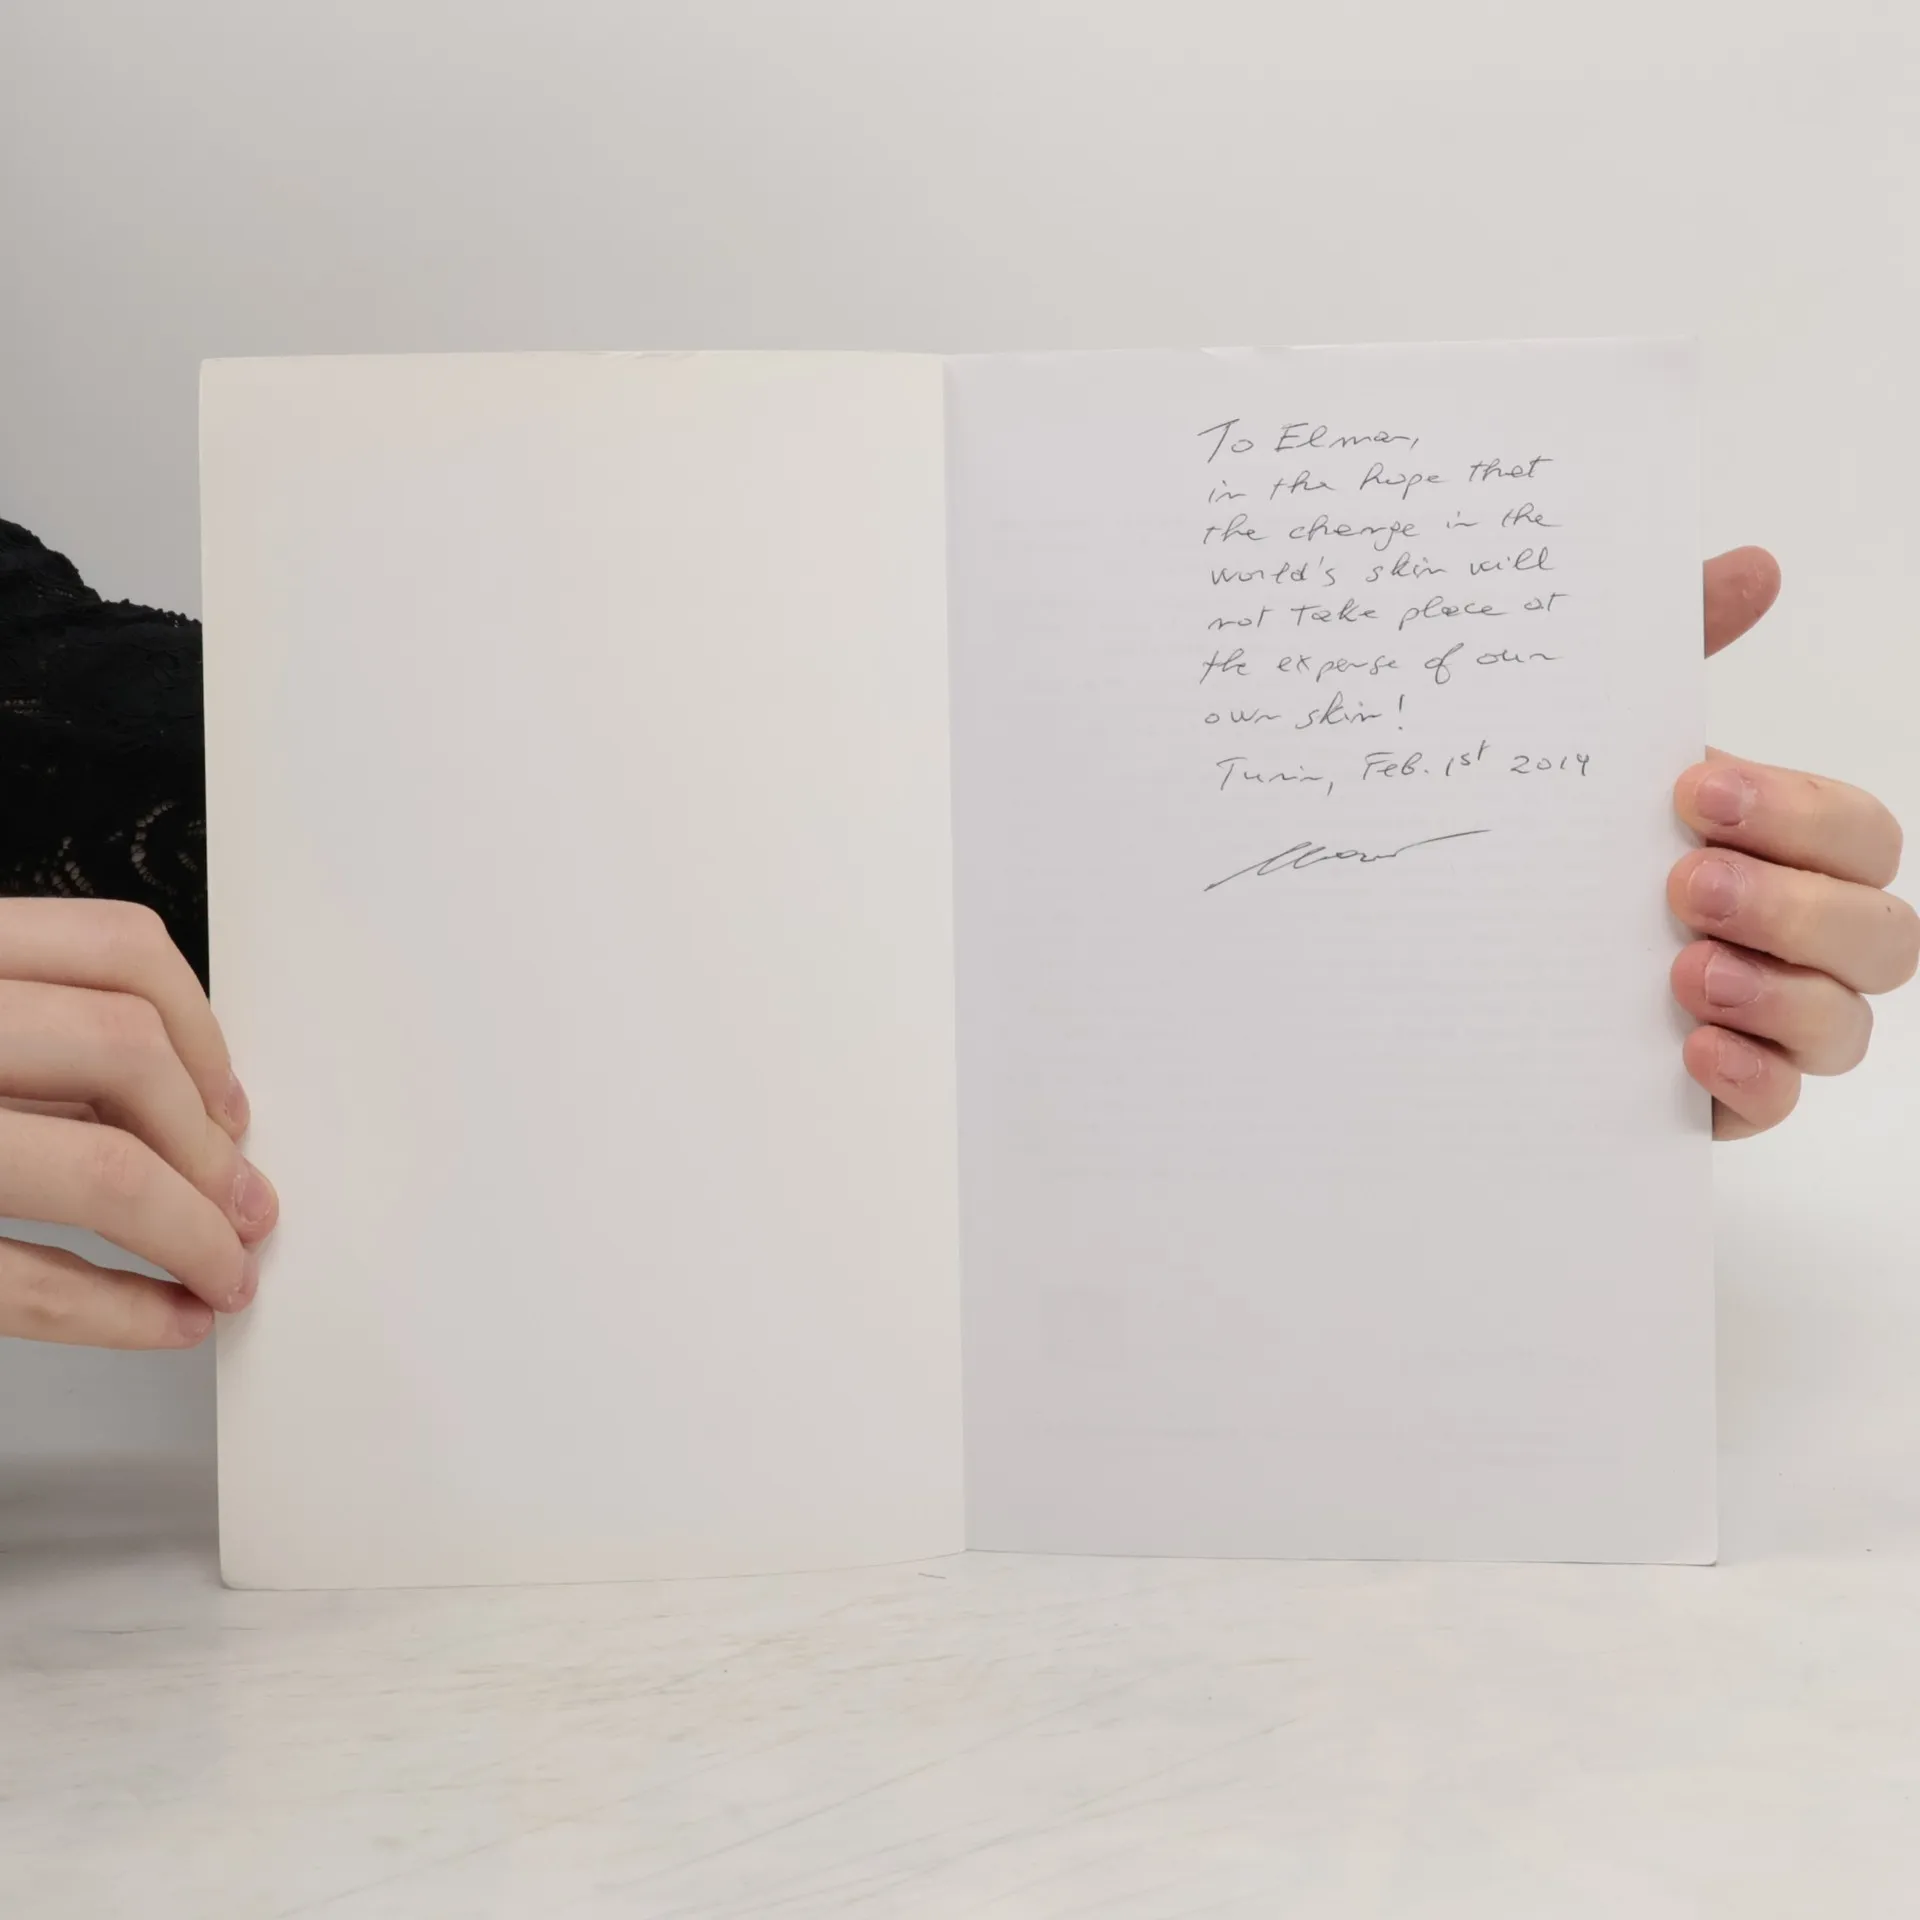 To Elmar,
in the hope that
the change in the
world's skin will
not take place at
the expense of our
own skin!
Turin, Feb. 1st 2014